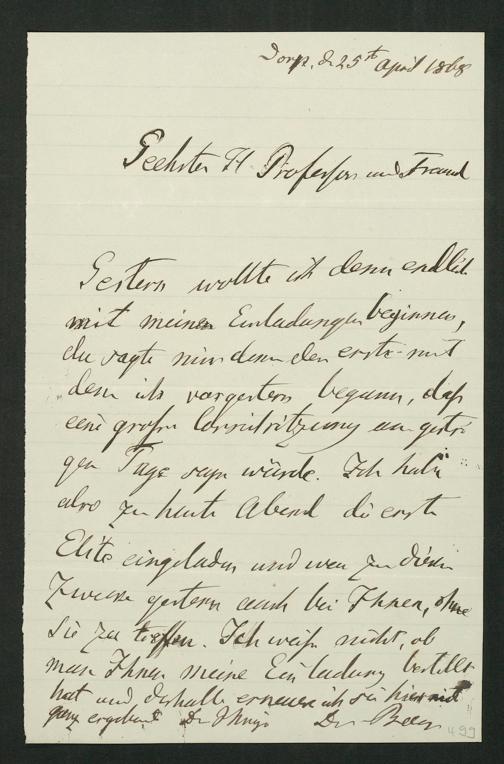 Dorp. d. 25st April 1868
Geehrter H Professor und Freund
Gestern wollte ich denn endlich
mit meinen Einladungen beginnen,
da sagte mir denn der erste mit
dem ich vorgestern begann, daß
eine große Conseilsitzung am gestri
gen Tage seyn würde. Ich habe
also zu heute Abend die erste
Elite eingeladen und war zu diesem
Zwecke gestern auch bei Ihnen, ohne
Sie zu treffen. Ich weiß nicht, ob
man Ihnen meine Einladung bestellt
hat und deshalb erneuere ich sie hiermit
ganz ergebenst Der Ihrige
499